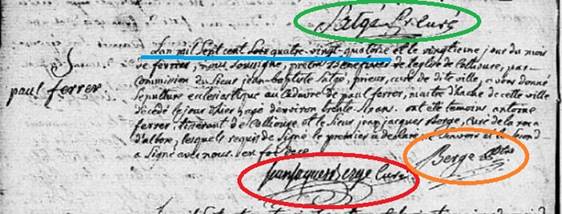 Satgé Curé
L'an mil sept cent soix quatre-vingt-quatorze et le vingtieme jour du mois
de fevrier, nous soussigné, pretre Beneficier de l'eglise de Collioure, par
commission du Sieur jean-baptiste Satgé, prieur, curé de dite ville, avons donné
paul ferrer
sepulture eclesiastique au cadavre de paul ferrer, maitre d'hache de cette ville
decedé le jour d'hier agé d'environ trente ans. ont été temoins antoine
ferrer, de Collioure et le Sieur jean jacques Berge, curé de la
d'albere, lesquels requis de signé le premier a declaré et le second
a signé avec nous. en foi de ce
Berge
jean jacques Berge curé